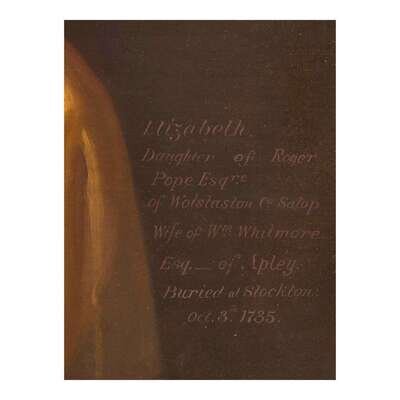 Elizabeth.
Daughter of Roger
Pope Esqre
of Wolstaston Co Salop
Wife of Wm Whitmore
Esq. of Apley.
Buried at Stockton.
Oct. 3. 1735.